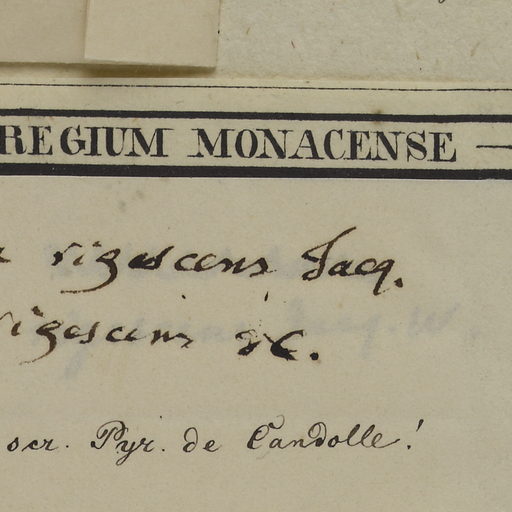 REGIUM MONACENSE —
rigescens Jacq.
rigescens DC.
ocr. Pyr. de Candolle!